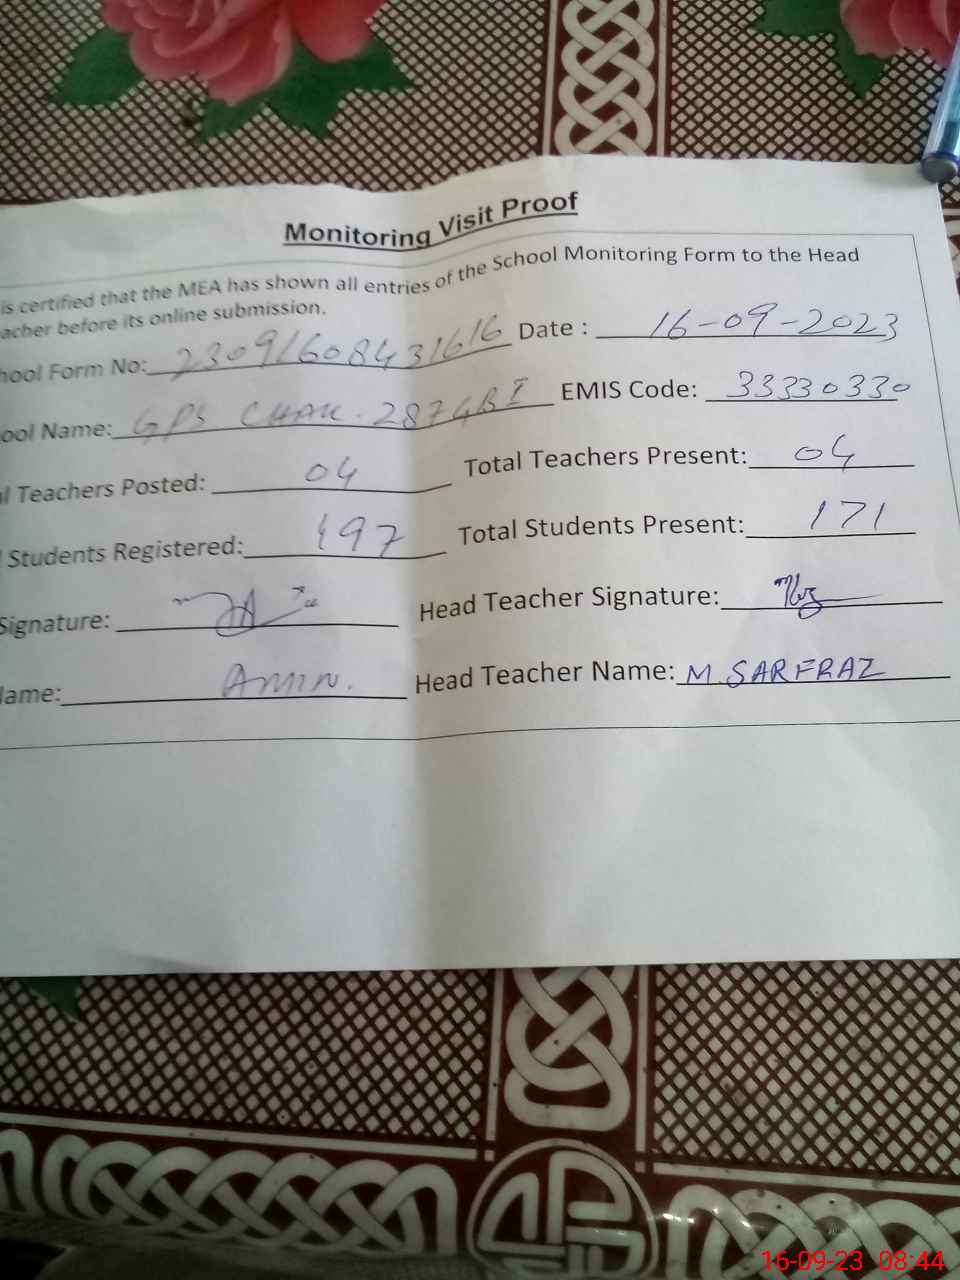 Monitoring Visit Proof
is certified that the MEA has shown all entries of the School Monitoring Form to the Head
acher before its online submission.
hool Form No: 23091608431616 Date : 16-09-2023
ool Name: GPS CHAK. 287GBI EMIS Code: 33330330
l Teachers Posted: 04 Total Teachers Present: 04
Students Registered: 197 Total Students Present: 171
Signature: Head Teacher Signature:
lame: Amin. Head Teacher Name: M. SARFRAZ
16-09-23 08:44